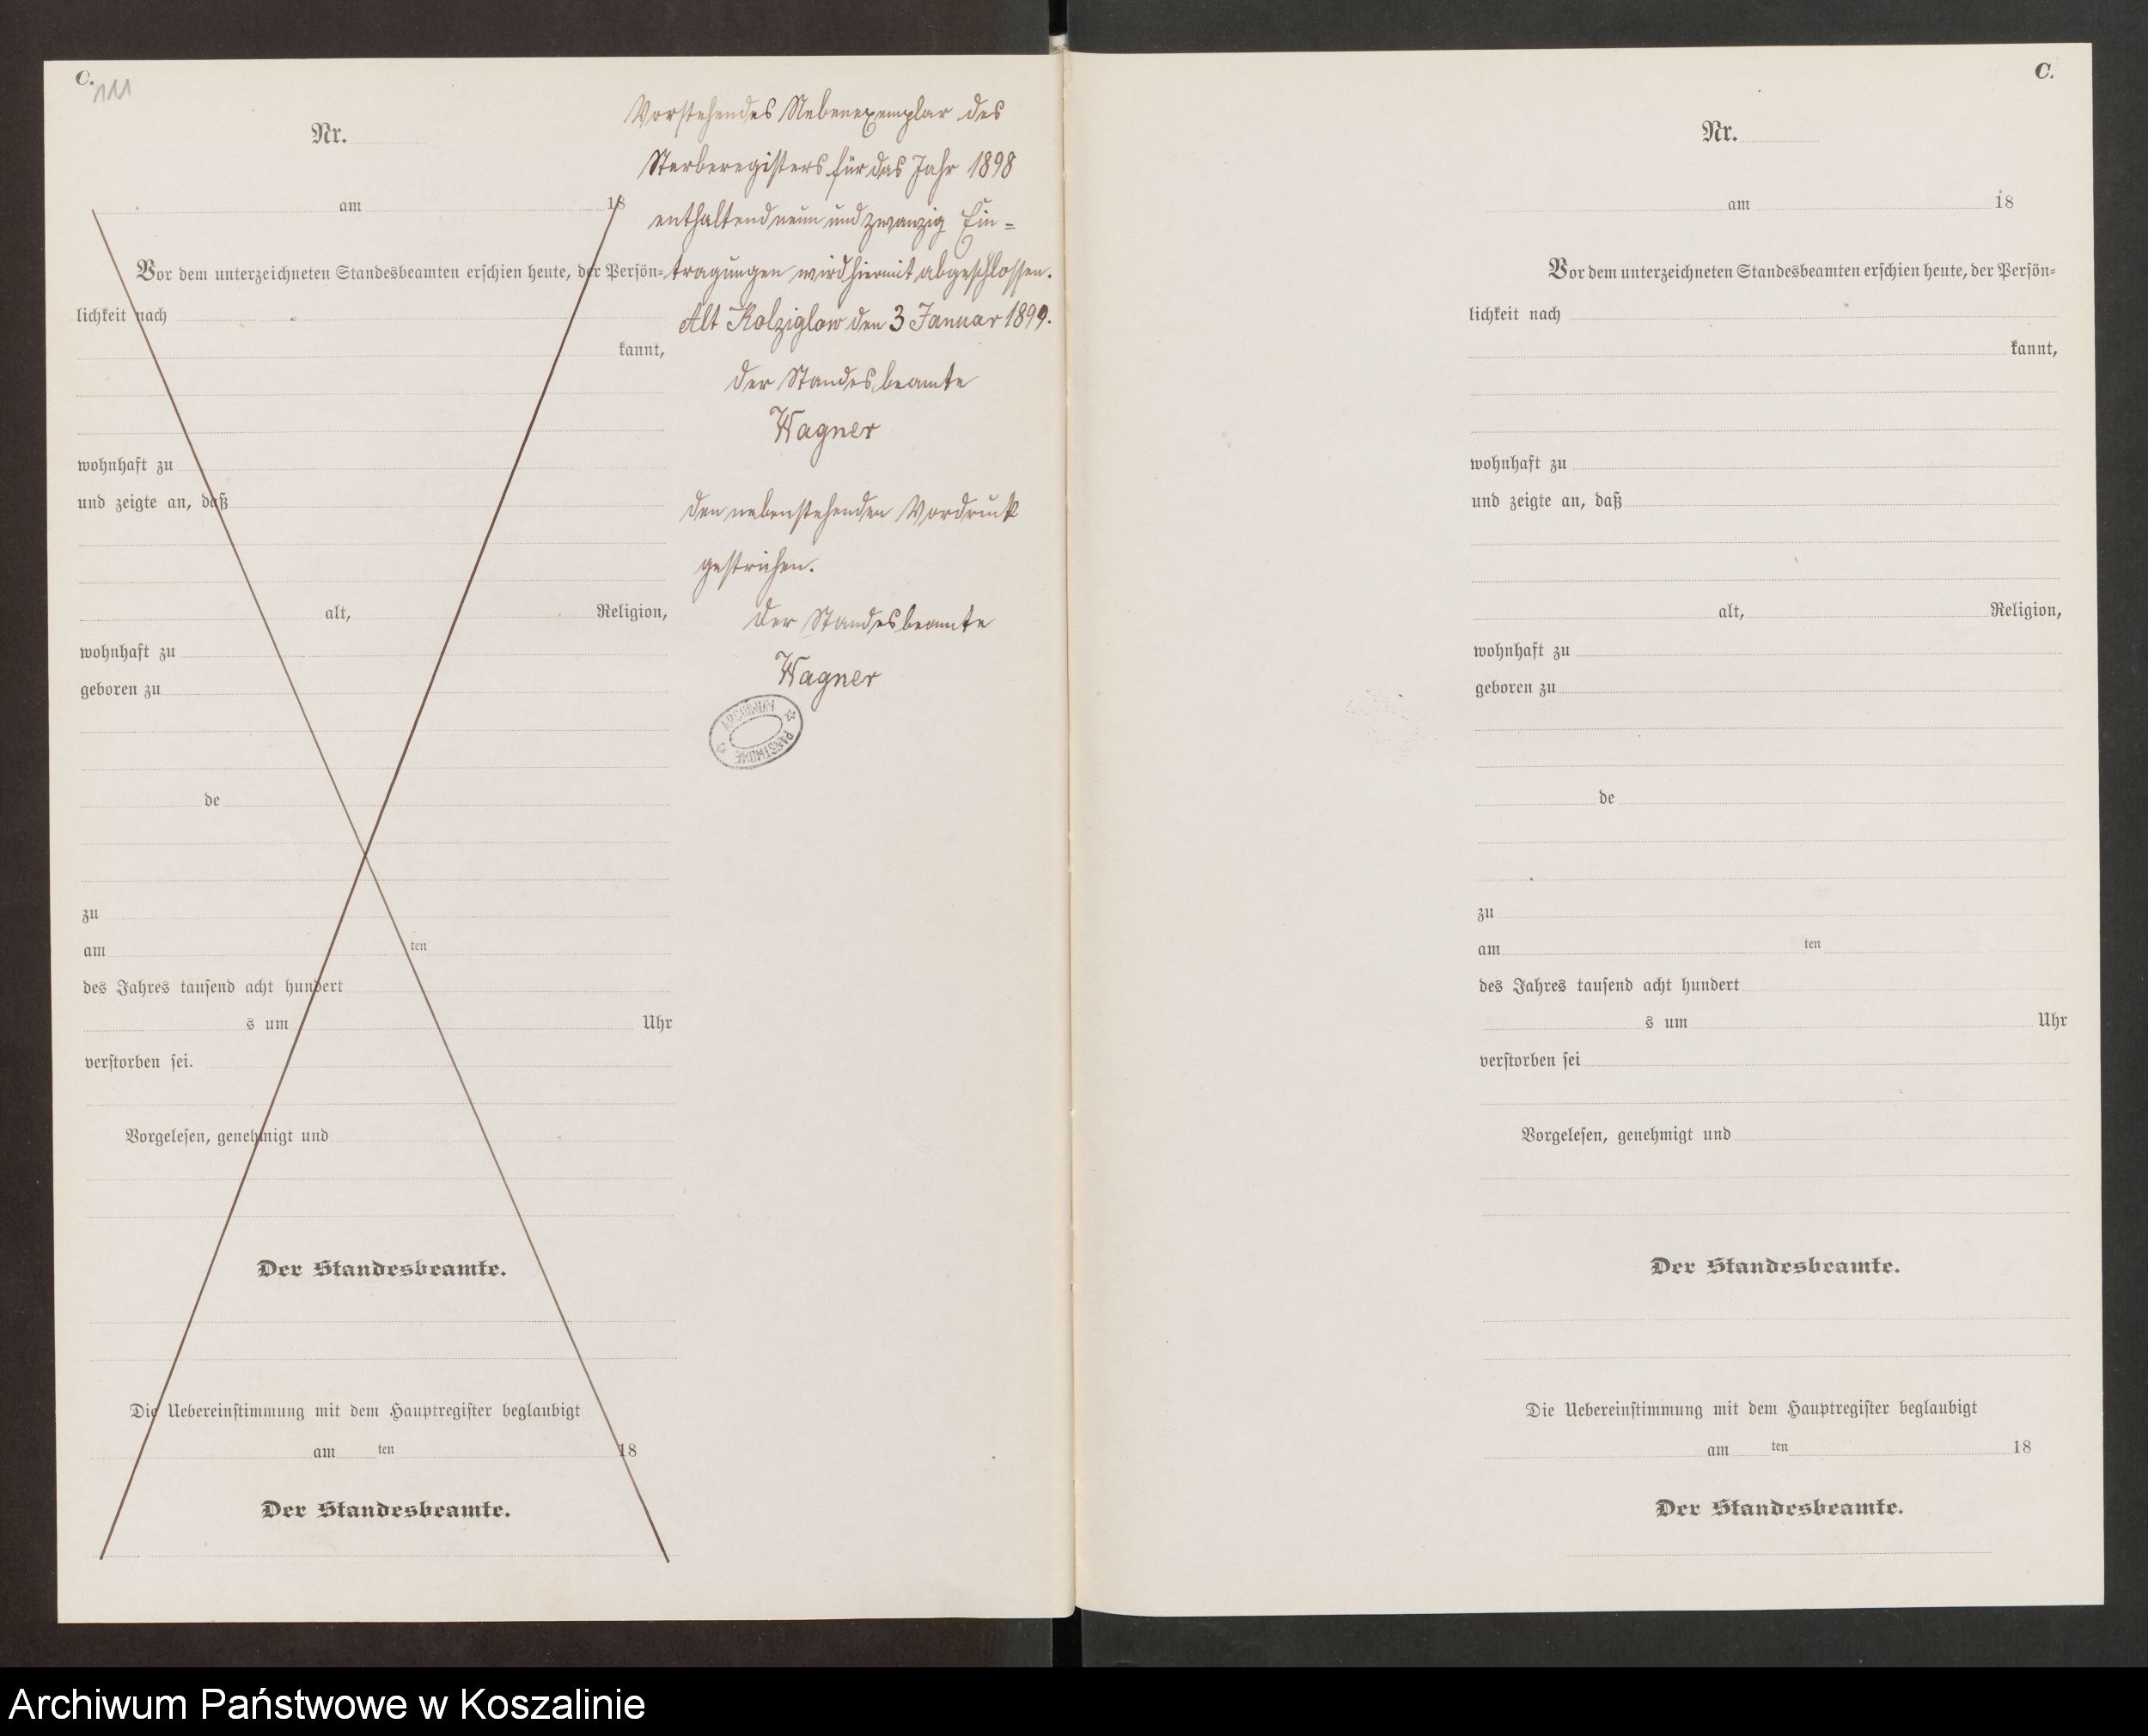 C.
111
Nr.
am 18
Vor dem unterzeichneten Standesbeamten erschien heute, der Persön-
lichkeit nach
kannt,
wohnhaft zu
und zeigte an, daß
alt, Religion,
wohnhaft zu
geboren zu
de
zu
am ten
des Jahres tausend acht hundert
s um Uhr
verstorben sei.
Vorgelesen, genehmigt und
Der Standesbeamte.
Die Uebereinstimmung mit dem Hauptregister beglaubigt
am ten 18
Der Standesbeamte.
Vorstehendes Nebenexemplar des
Sterberegisters für das Jahr 1898
enthaltend neun und zwanzig Ein-
tragungen wird hiermit abgeschlossen.
Alt Kolziglow den 3 Januar 1899.
Der Standesbeamte
Wagner
Den nebenstehenden Vordruck
gestrichen.
Der Standesbeamte
Wagner
ARCHIWUM
PAŃSTWOWE
C.
Nr.
am 18
Vor dem unterzeichneten Standesbeamten erschien heute, der Persön-
lichkeit nach
kannt,
wohnhaft zu
und zeigte an, daß
alt, Religion,
wohnhaft zu
geboren zu
de
zu
am ten
des Jahres tausend acht hundert
s um Uhr
verstorben sei
Vorgelesen, genehmigt und
Der Standesbeamte.
Die Uebereinstimmung mit dem Hauptregister beglaubigt
am ten 18
Der Standesbeamte.
Archiwum Państwowe w Koszalinie